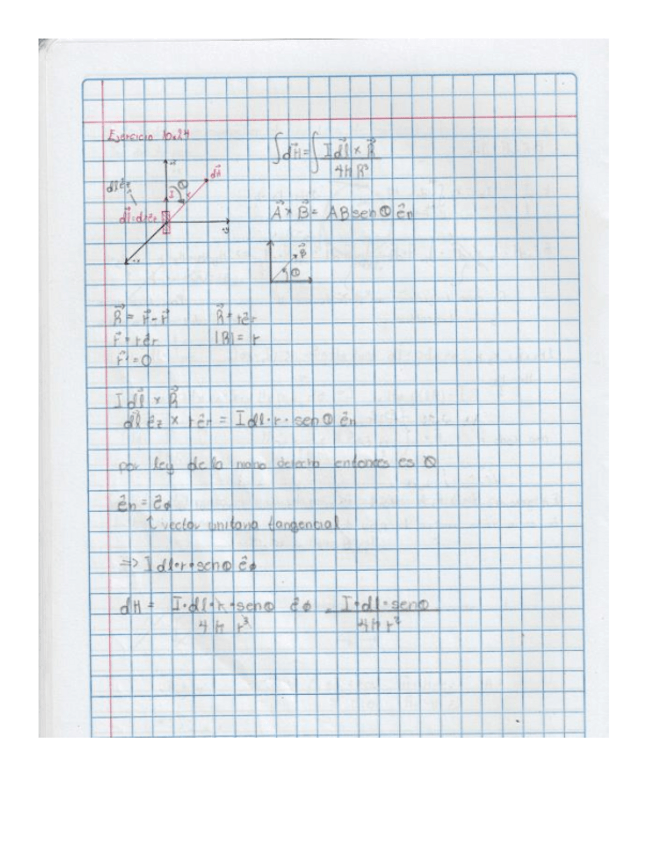 Ejercicio 10.24
∫dH⃗ = ∫ I dl⃗ × R⃗ / 4π R³
dH⃗
I
r
dl⃗
A⃗ × B⃗ = AB sen θ ên
B⃗
θ
R⃗ = r⃗ - r⃗' R⃗ = rêr
r⃗ = rêr |R| = r
r⃗' = 0
I dl⃗ × R⃗
dl êz × rêr = I dl · r · sen θ ên
por ley de la mano derecha entonces es ⊗
ên = êφ
↑ vector unitario tangencial
=> I dl · r · sen θ êφ
dH = I · dl · r · sen θ / 4π r³ êφ = I · dl · sen θ / 4π r²